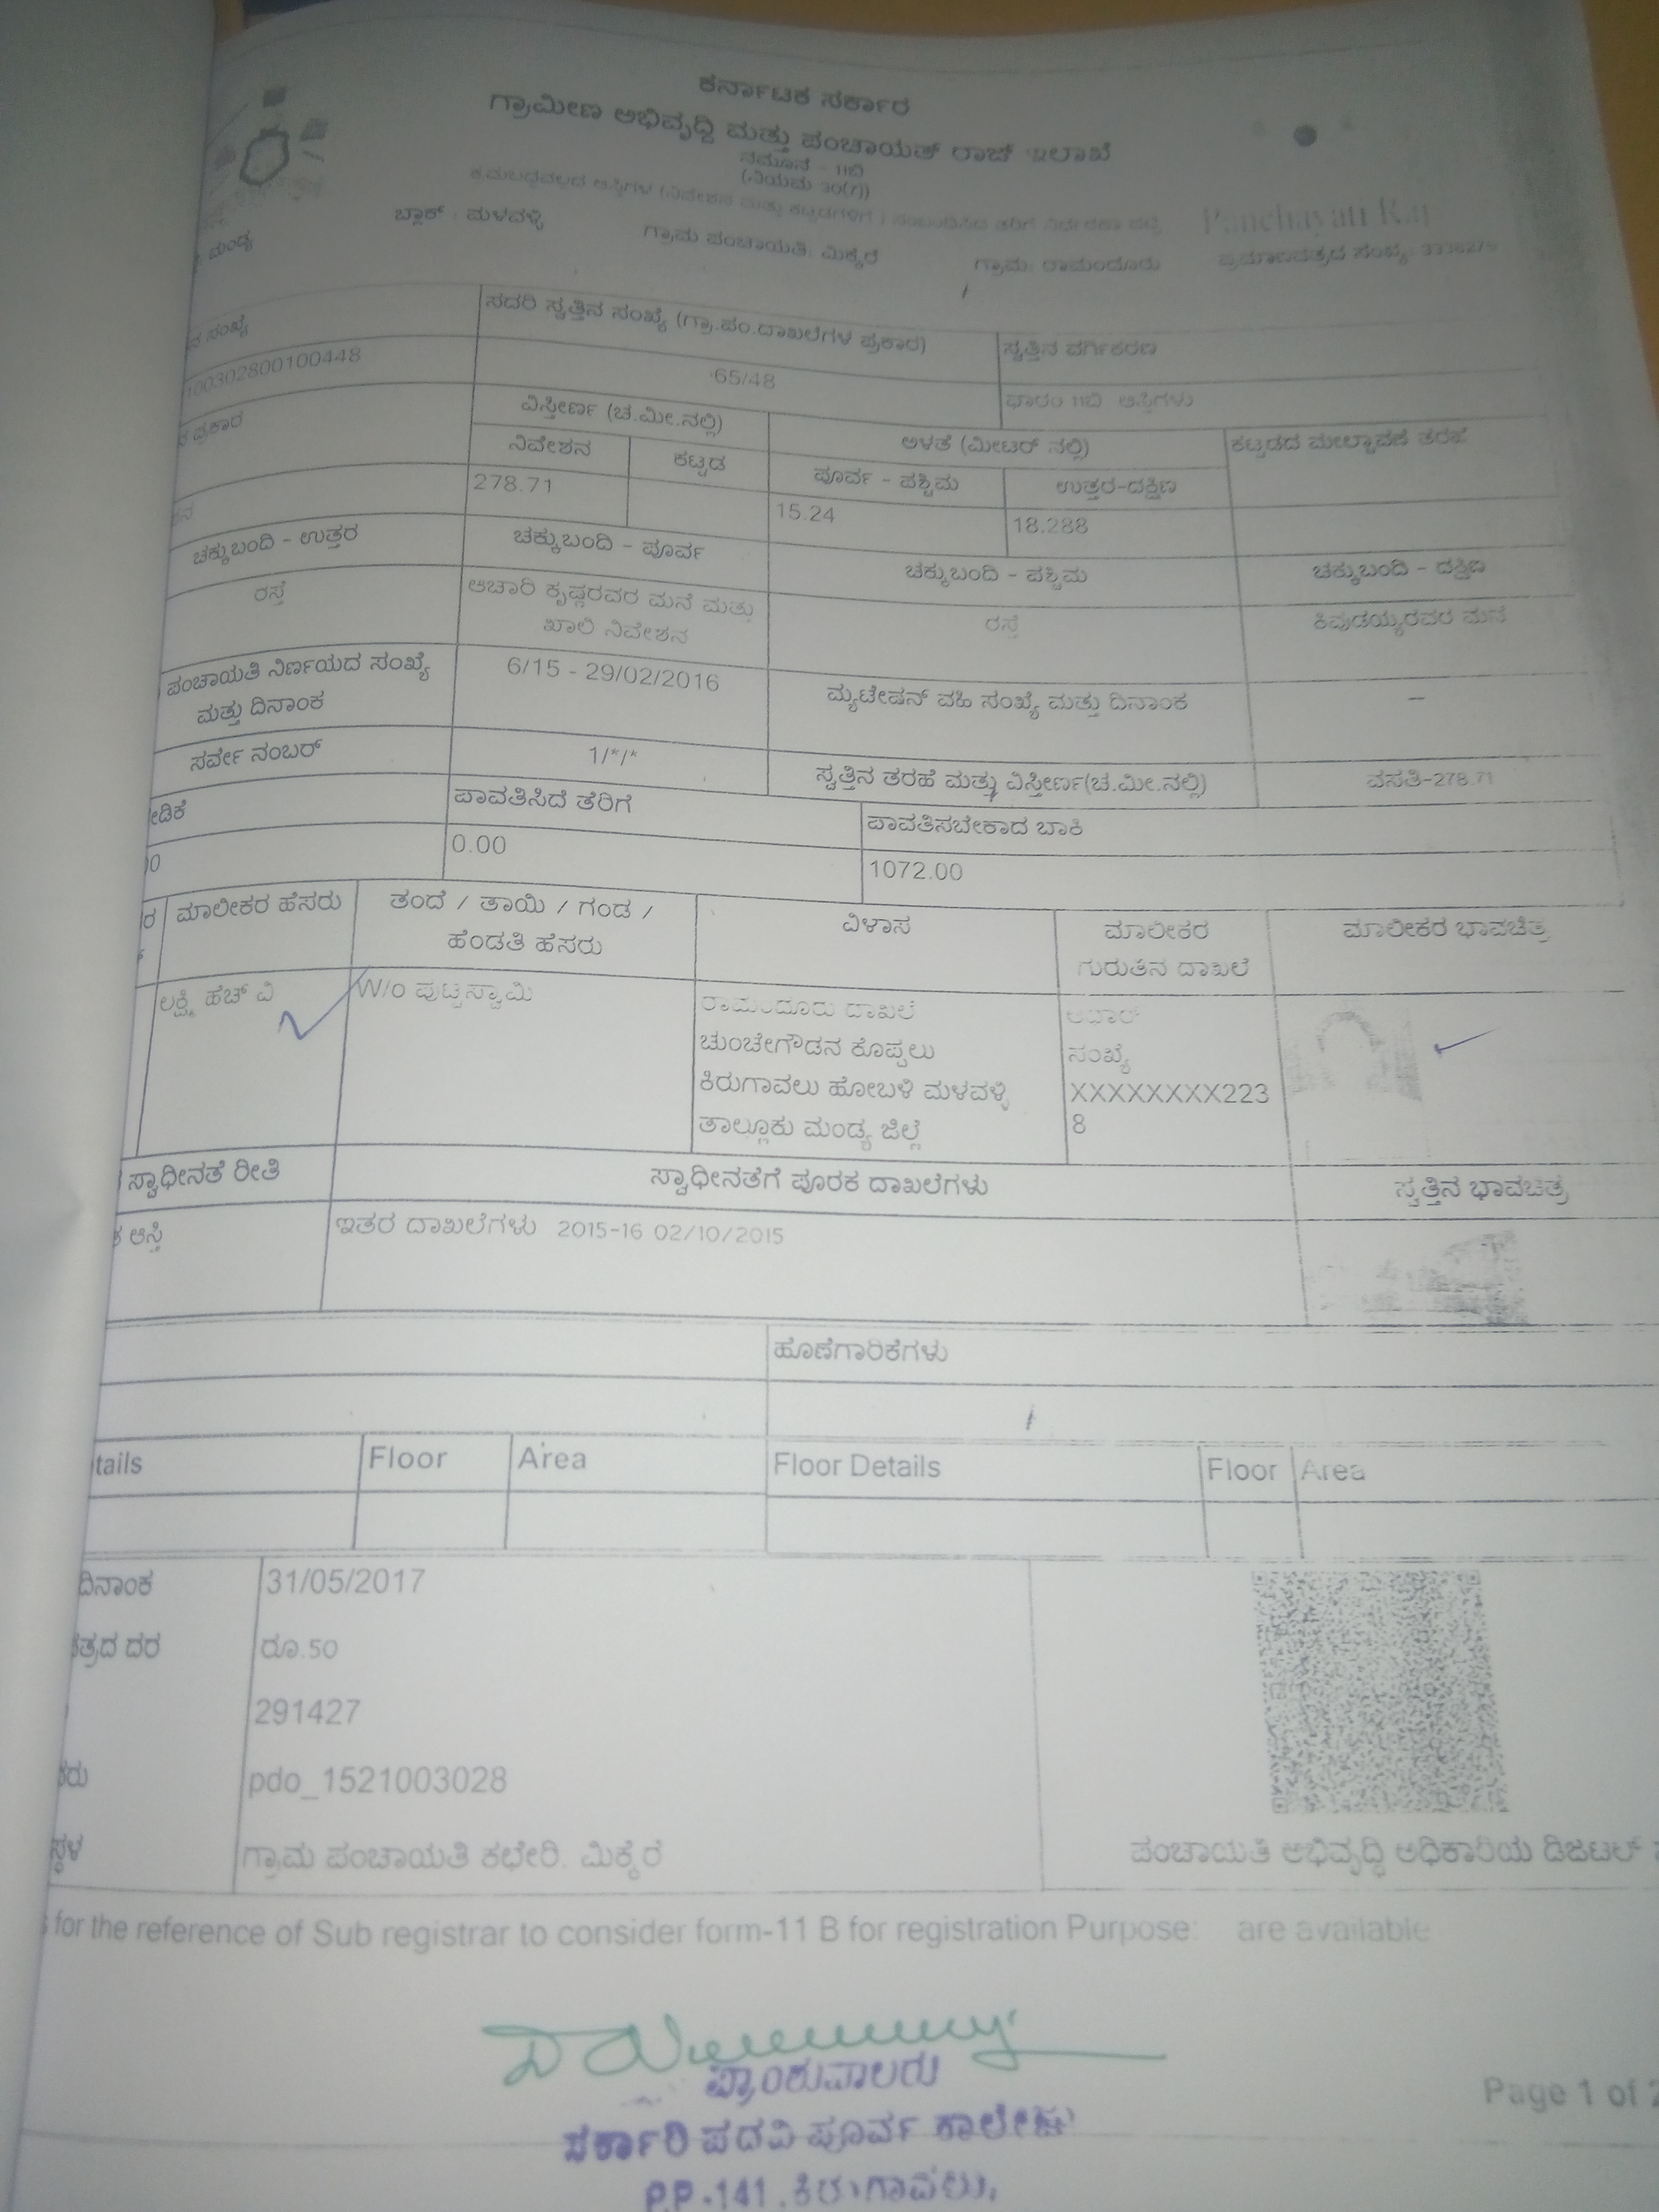 ಕರ್ನಾಟಕ ಸರ್ಕಾರ
ಗ್ರಾಮೀಣ ಅಭಿವೃದ್ಧಿ ಮತ್ತು ಪಂಚಾಯತ್ ರಾಜ್ ಇಲಾಖೆ
ನಮೂನೆ - 11ಬಿ
(ನಿಯಮ 30(7))
Panchayati Raj
ಮಂಡ್ಯ ಬ್ಲಾಕ್ : ಮಳವಳ್ಳಿ ಗ್ರಾಮ ಪಂಚಾಯತಿ: ಮಿಕ್ಕೆರೆ ಗ್ರಾಮ: ರಾಮಂದೂರು ಪ್ರಮಾಣಪತ್ರದ ಸಂಖ್ಯೆ: 3338275
ನ ಸಂಖ್ಯೆ ಸದರಿ ಸ್ವತ್ತಿನ ಸಂಖ್ಯೆ (ಗ್ರಾ.ಪಂ.ದಾಖಲೆಗಳ ಪ್ರಕಾರ) ಸ್ವತ್ತಿನ ವರ್ಗಿಕರಣ
100302800100448 65/48 ಫಾರಂ 11ಬಿ ಆಸ್ತಿಗಳು
ನ ಪ್ರಕಾರ ವಿಸ್ತೀರ್ಣ (ಚ.ಮೀ.ನಲ್ಲಿ) ಅಳತೆ (ಮೀಟರ್ ನಲ್ಲಿ) ಕಟ್ಟಡದ ಮೇಲ್ಛಾವಣಿ ತರಹೆ
ನಿವೇಶನ ಕಟ್ಟಡ ಪೂರ್ವ - ಪಶ್ಚಿಮ ಉತ್ತರ-ದಕ್ಷಿಣ
ಶನ 278.71 15.24 18.288
ಚಕ್ಕುಬಂದಿ - ಉತ್ತರ ಚಕ್ಕುಬಂದಿ - ಪೂರ್ವ ಚಕ್ಕುಬಂದಿ - ಪಶ್ಚಿಮ ಚಕ್ಕುಬಂದಿ - ದಕ್ಷಿಣ
ರಸ್ತೆ ಆಚಾರಿ ಕೃಷ್ಣರವರ ಮನೆ ಮತ್ತು ರಸ್ತೆ ಕಿವುಡಯ್ಯರವರ ಮನೆ
ಖಾಲಿ ನಿವೇಶನ
ಪಂಚಾಯತಿ ನಿರ್ಣಯದ ಸಂಖ್ಯೆ 6/15 - 29/02/2016 ಮ್ಯುಟೇಷನ್ ವಹಿ ಸಂಖ್ಯೆ ಮತ್ತು ದಿನಾಂಕ --
ಮತ್ತು ದಿನಾಂಕ
ಸರ್ವೇ ನಂಬರ್ 1/*/* ಸ್ವತ್ತಿನ ತರಹೆ ಮತ್ತು ವಿಸ್ತೀರ್ಣ(ಚ.ಮೀ.ನಲ್ಲಿ) ವಸತಿ-278.71
ಡಿಕೆ ಪಾವತಿಸಿದೆ ತೆರಿಗೆ ಪಾವತಿಸಬೇಕಾದ ಬಾಕಿ
0 0.00 1072.00
ರ ಮಾಲೀಕರ ಹೆಸರು ತಂದೆ / ತಾಯಿ / ಗಂಡ / ವಿಳಾಸ ಮಾಲೀಕರ ಮಾಲೀಕರ ಭಾವಚಿತ್ರ
ಹೆಂಡತಿ ಹೆಸರು ಗುರುತಿನ ದಾಖಲೆ
ಲಕ್ಷ್ಮಿ ಹೆಚ್ ವಿ W/o ಪುಟ್ಟಸ್ವಾಮಿ ರಾಮಂದೂರು ದಾಖಲೆ ಆಧಾರ್
ಚುಂಚೇಗೌಡನ ಕೊಪ್ಪಲು ಸಂಖ್ಯೆ
ಕಿರುಗಾವಲು ಹೋಬಳಿ ಮಳವಳ್ಳಿ XXXXXXXX223
ತಾಲ್ಲೂಕು ಮಂಡ್ಯ ಜಿಲ್ಲೆ 8
ಸ್ವಾಧೀನತೆ ರೀತಿ ಸ್ವಾಧೀನತೆಗೆ ಪೂರಕ ದಾಖಲೆಗಳು ಸ್ವತ್ತಿನ ಭಾವಚಿತ್ರ
ಕ ಆಸ್ತಿ ಇತರ ದಾಖಲೆಗಳು 2015-16 02/10/2015
ಹೊಣೆಗಾರಿಕೆಗಳು
tails Floor Area Floor Details Floor Area
ದಿನಾಂಕ 31/05/2017
ತ್ರದ ದರ ರೂ.50
291427
ರು pdo_1521003028
ಸ್ಥಳ ಗ್ರಾಮ ಪಂಚಾಯತಿ ಕಛೇರಿ. ಮಿಕ್ಕೆರೆ
ಪಂಚಾಯತಿ ಅಭಿವೃದ್ಧಿ ಅಧಿಕಾರಿಯ ಡಿಜಿಟಲ್
for the reference of Sub registrar to consider form-11 B for registration Purpose: are available
ಪ್ರಾಂಶುಪಾಲರು
Page 1 of 2
ಸರ್ಕಾರಿ ಪದವಿ ಪೂರ್ವ ಕಾಲೇಜು
P.P.-141, ಕಿರುಗಾವಲು,